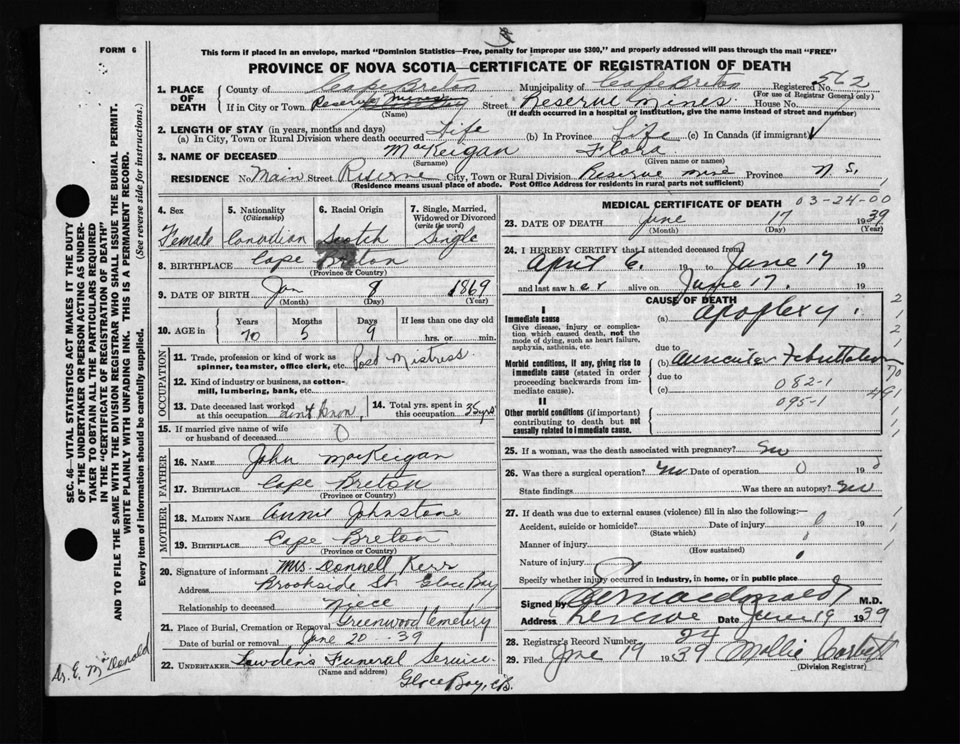 FORM 6
This form if placed in an envelope, marked "Dominion Statistics—Free, penalty for improper use $300," and properly addressed will pass through the mail "FREE"
PROVINCE OF NOVA SCOTIA—CERTIFICATE OF REGISTRATION OF DEATH
1. PLACE OF DEATH
County of Cape Breton Municipality of Cape Breton Registered No. 562
(For use of Registrar General only)
If in City or Town Reserve Street Reserve Mines House No.
(Name) (If death occurred in a hospital or institution, give the name instead of street and number)
2. LENGTH OF STAY (in years, months and days)
(a) In City, Town or Rural Division where death occurred Life (b) In Province Life (c) In Canada (if immigrant)
3. NAME OF DECEASED MacKeigan Flora
(Surname) (Given name or names)
RESIDENCE No. Main Street Reserve City, Town or Rural Division Reserve Mine Province N. S.
(Residence means usual place of abode. Post Office Address for residents in rural parts not sufficient)
4. Sex Female
5. Nationality (Citizenship) Canadian
6. Racial Origin Scotch
7. Single, Married, Widowed or Divorced (write the word) Single
8. BIRTHPLACE Cape Breton
(Province or Country)
9. DATE OF BIRTH Jan 9 1869
(Month) (Day) (Year)
10. AGE in Years 70 Months 5 Days 9 If less than one day old hrs. or min.
OCCUPATION
11. Trade, profession or kind of work as spinner, teamster, office clerk, etc. Post Mistress
12. Kind of industry or business, as cotton-mill, lumbering, bank, etc.
13. Date deceased last worked at this occupation don't know
14. Total yrs. spent in this occupation 36 yrs
15. If married give name of wife or husband of deceased 0
FATHER
16. NAME John MacKeigan
17. BIRTHPLACE Cape Breton
(Province or Country)
MOTHER
18. MAIDEN NAME Annie Johnstone
19. BIRTHPLACE Cape Breton
(Province or Country)
20. Signature of informant Mrs. Donnell Kerr
Address Brookside St. Glace Bay
Relationship to deceased Niece
21. Place of Burial, Cremation or Removal Greenwood Cemetery
Date of burial or removal June 20 - 39
22. UNDERTAKER Lowden's Funeral Service
(Name and address)
Glace Bay, C.B.
MEDICAL CERTIFICATE OF DEATH 03-24-00
23. DATE OF DEATH June 17 1939
(Month) (Day) (Year)
24. I HEREBY CERTIFY that I attended deceased from
April 6. 19 to June 17 19
and last saw her alive on June 17. 19
CAUSE OF DEATH
I
Immediate cause
Give disease, injury or complication which caused death, not the mode of dying, such as heart failure, asphyxia, asthenia, etc.
(a) apoplexy.
due to
Morbid conditions, if any, giving rise to immediate cause (stated in order proceeding backwards from immediate cause).
(b) auricular
due to 082-1
(c) 095-1
II
Other morbid conditions (if important) contributing to death but not causally related to immediate cause.
25. If a woman, was the death associated with pregnancy? no
26. Was there a surgical operation? no Date of operation 0 19 0
State findings Was there an autopsy? no
27. If death was due to external causes (violence) fill in also the following:—
Accident, suicide or homicide? Date of injury 19
(State which)
Manner of injury
(How sustained)
Nature of injury
Specify whether injury occurred in industry, in home, or in public place
Signed by Macdonald M.D.
Address Reserve Date June 19 1939
28. Registrar's Record Number 24
29. Filed June 19 1939 Mollie Corbett
(Division Registrar)
SEC. 46—VITAL STATISTICS ACT MAKES IT THE DUTY OF THE UNDERTAKER OR PERSON ACTING AS UNDERTAKER TO OBTAIN ALL THE PARTICULARS REQUIRED IN THE "CERTIFICATE OF REGISTRATION OF DEATH" AND TO FILE THE SAME WITH THE DIVISION REGISTRAR WHO SHALL ISSUE THE BURIAL PERMIT.
WRITE PLAINLY WITH UNFADING INK. THIS IS A PERMANENT RECORD.
Every item of information should be carefully supplied. (See reverse side for instructions.)
Dr. E. McDonald